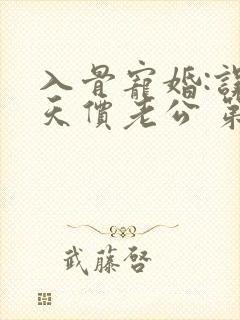 入骨寵婚:誤
天價老公 第
武藤啓